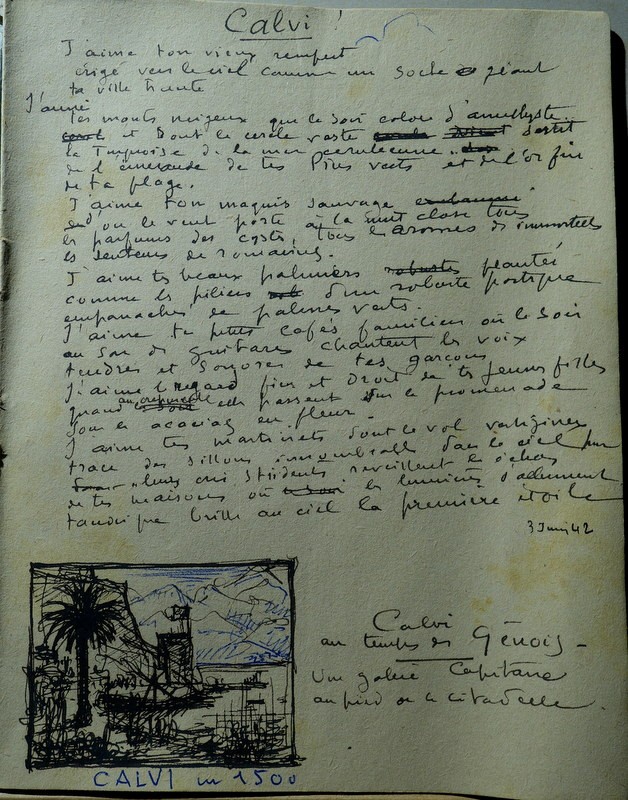 Calvi !
J'aime ton vieux rempart
érigé vers le ciel comme un socle géant
ta ville haute
J'aime
tes monts neigeux que le soir colore d'améthyste
et dont le cercle vaste sertit
la Turquoise de la mer céruléenne
de l'émeraude de tes Pins verts et de l'or fin
de ta plage.
J'aime ton maquis sauvage embaumé
d'où le vent porte à la nuit close tous
les parfums des cystes, tous les aromes des immortelles
les senteurs de romarins.
J'aime tes beaux palmiers robustes plantés
comme les piliers d'un robuste portique
empanachés de palmes vertes.
J'aime tes petits cafés familiers où le soir
au son des guitares chantent les voix
tendres et sonores de tes garçons
J'aime le regard fier et droit de tes jeunes filles
quand au crépuscule elles passent sur la promenade
sous les acacias en fleur.
J'aime tes martinets dont le vol vertigineux
trace des sillons innombrables dans le ciel pur
leurs cris stridents réveillent les échos
de tes maisons où les lumières s'allument
tandis que brille au ciel la première étoile
3 Juin 42
Calvi
au temps des Génois -
Une galère Capitane
au pied de la citadelle.
CALVI en 1500